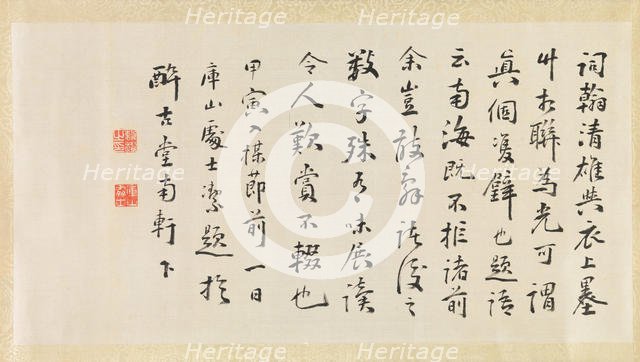 詞翰清雄與衣上墨
竹聯為光可謂
真個雙璧也題語
云南海既不拒諸前
余豈敢辭諸後之
數字殊有味展讀
令人歎賞不輟也
甲寅楳節前一日
庫山處士潔題於
醉古堂南軒下
Heritage
Heritage
Heritage
Heritage
Heritage
Heritage